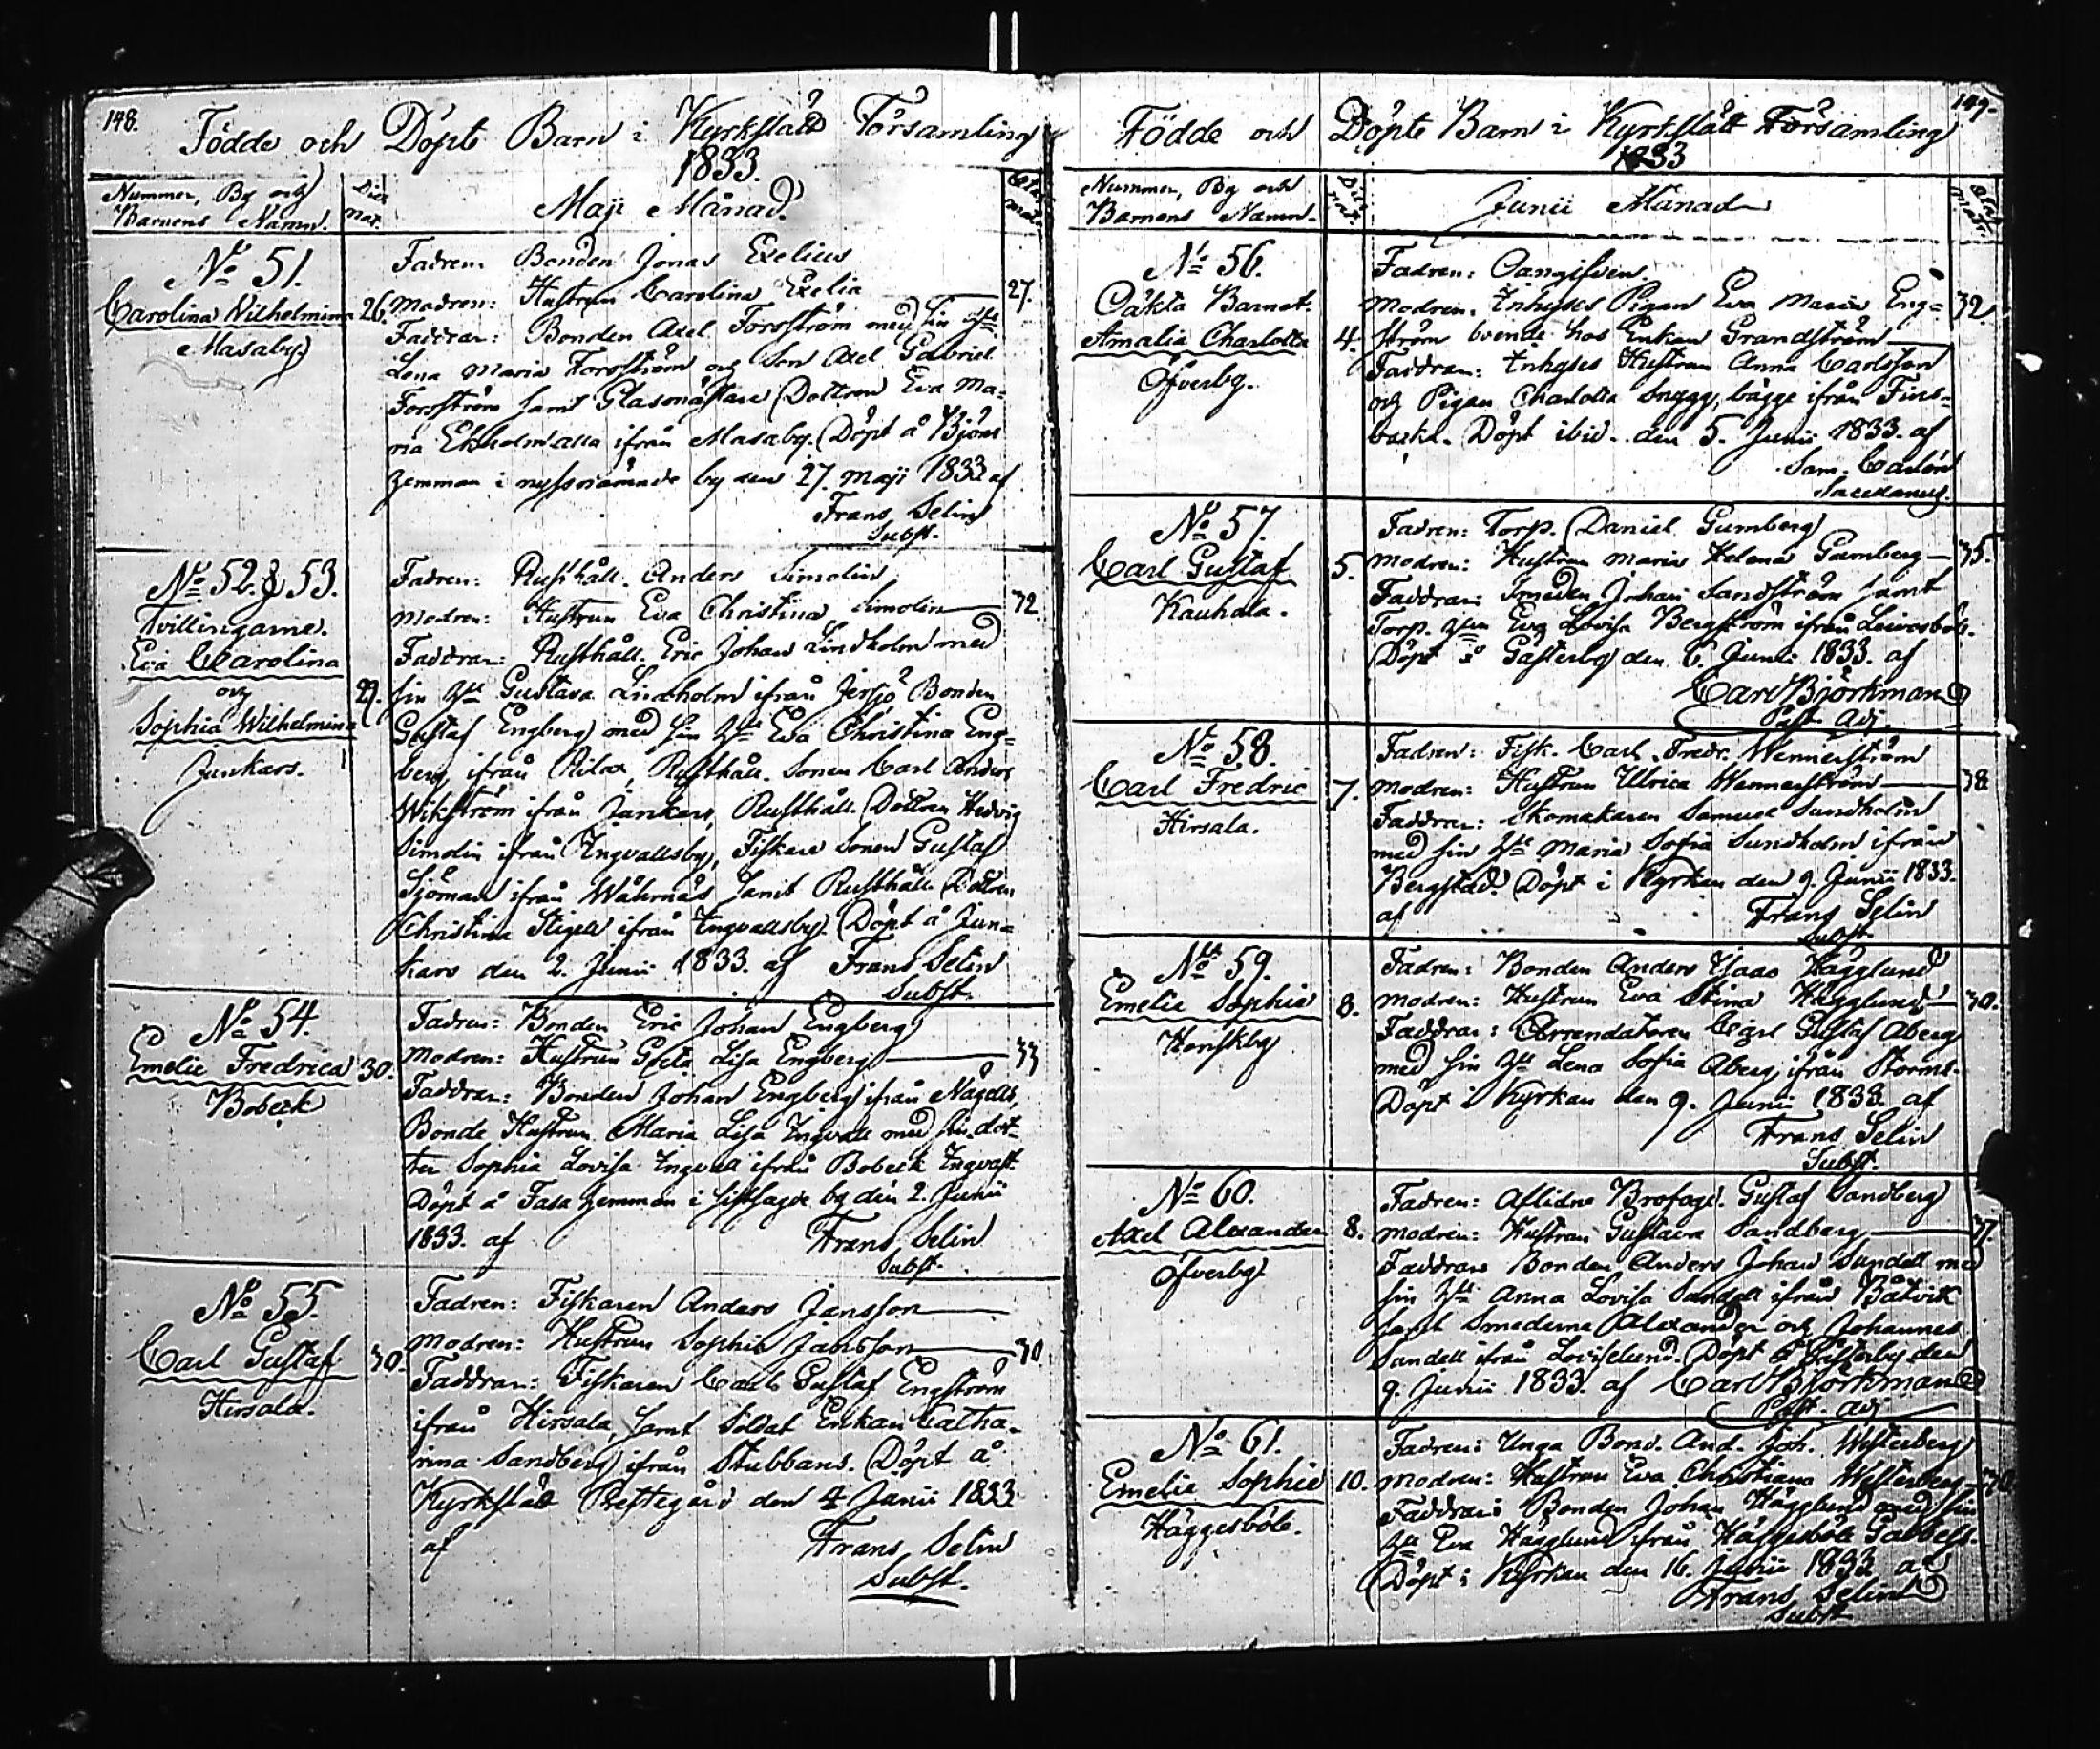 148.
Födde och Döpte Barn i Kyrkslätt Församling
1833.
Nummer, By och
Barnens Namn.
Dies
nat.
Maji Månad.
No 51.
Carolina Wilhelmina
Masaby
26.
Fadren: Bonden Jonas Exelius
Modren: Hustrun Carolina Exelia
27.
Faddrar: Bonden Axel Forsström med sin
Lena Maria Forsström och Son Axel Gabriel
Forsström samt Glasmästare Dottren Eva Ma-
ria Ekholm alla ifrån Masaby. Döpt å Björs
hemman i nyssnämnde by den 27. Maji 1833 af
Frans Selin
Subst.
No 52. & 53.
Tvillingarne.
Eva Carolina
och
Sophia Wilhelmina
Junkars.
29.
Fadren: Rusthåll. Anders Simolin
Modren: Hustrun Eva Christina Simolin
32.
Faddrar: Rusthåll. Eric Johan Lindholm med
sin Gustava Lindholm ifrån Jersjö Bonden
Gustaf Engberg med sin Eva Christina Eng-
berg ifrån Rilax, Rusthåll. Sonen Carl Anders
Wikström ifrån Junkars, Rusthåll. Dottren Hedvig
Simolin ifrån Ingvallsby, Fiskare Sonen Gustaf
Sjöman ifrån Wåhrnäs samt Rusthåll. Dottren
Christina Stigell ifrån Ingvallsby. Döpt å Jun-
kars den 2. Junii 1833. af Frans Selin
Subst.
No 54.
Emelie Fredrica
Bobeck
30.
Fadren: Bonden Eric Johan Engberg
Modren: Hustrun Greta Lisa Engberg
33
Faddrar: Bonden Johan Engberg ifrån Nägels,
Bonde Hustrun Maria Lisa Ingvall med sin dot-
ter Sophia Lovisa Ingvall ifrån Bobeck
Döpt å Fasa hemman i sistsagde by den 2. Junii
1833. af Frans Selin
Subst.
No 55.
Carl Gustaf
Hirsala.
30.
Fadren: Fiskaren Anders Jansson
Modren: Hustrun Sophia Jansson
30
Faddrar: Fiskaren Carl Gustaf Engström
ifrån Hirsala, samt Soldat Enkan Catha-
rina Sandberg ifrån Stubbans. Döpt å
Kyrkslätt Prestegård den 4 Junii 1833
af Frans Selin
Subst.
149.
Födde och Döpte Barn i Kyrkslätt Församling
1833
Nummer, By och
Barnens Namn.
Dies
nat.
Junii Månad
No 56.
Oäkta Barnet.
Amalia Charlotta
Öfverby.
4.
Fadren: Oangifven.
Modren. Inhyses Pigan Eva Maria Eng-
32.
ström boende hos Enkan Grandström
Faddrar: Inhyses Hustrun Anna Carlsson
och Pigan Charlotta Snygg, bägge ifrån Fins-
backa. Döpt ibid. den 5. Junii 1833. af
Sam. Carlén
Sacellanus.
No 57.
Carl Gustaf
Kauhala.
5.
Fadren: Torp. Daniel Gumberg
Modren: Hustrun Maria Helena Gumberg
35.
Faddrar: Smeden Johan Sandström samt
Torp. Eva Lovisa Bergström ifrån
Döpt i Gästerby den 6. Junii 1833. af
Carl Björkman
Past. Adj.
No 58.
Carl Fredric
Hirsala.
7.
Fadren: Fisk. Carl Fredr. Wennerström
Modren: Hustrun Ulrica Wennerström
38.
Faddrar: Skomakaren Samuel Sundholm
med sin Maria Sofia Sundholm ifrån
Bergstad. Döpt i Kyrkan den 9. Junii 1833.
af Frans Selin
Subst.
No 59.
Emelie Sophia
Henskby
8.
Fadren: Bonden Anders Isaac Hägglund
Modren: Hustrun Eva Stina Hägglund
30.
Faddrar: Arrendatoren Carl Gustaf Åberg
med sin Lena Sofia Åberg ifrån Storms.
Döpt i Kyrkan den 9. Junii 1833. af
Frans Selin
Subst.
No 60.
Axel Alexander
Öfverby
8.
Fadren: Aflidne Brofogd. Gustaf Sandberg
Modren: Hustrun Gustava Sandberg
37.
Faddrar Bonden Anders Johan Sundell med
sin Anna Lovisa Sundell ifrån Båtvik
samt Smederna Alexander och Johannes
Sandell ifrån Loviselund. Döpt i Gästerby den
9. Junii 1833. af Carl Björkman
Past. Adj.
No 61.
Emelie Sophia
Häggesböle.
10.
Fadren: Unga Bond. And. Joh. Westerberg
Modren: Hustrun Eva Christiana Westerberg
30
Faddrar: Bonden Johan Hägglund med sin
Eva Hägglund ifrån Häggesböle
Döpt i Kyrkan den 16. Junii 1833 af
Frans Selin
Subst.